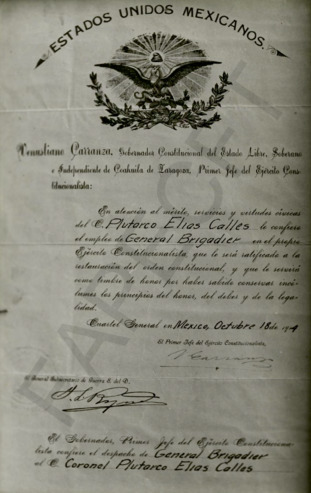 ESTADOS UNIDOS MEXICANOS.
Venustiano Carranza, Gobernador Constitucional del Estado Libre, Soberano
e Independiente de Coahuila de Zaragoza, Primer Jefe del Ejército Cons-
titucionalista:
En atención al mérito, servicios y virtudes cívicas
del C. Plutarco Elias Calles le confiere
el empleo de General Brigadier en el propio
Ejército Constitucionalista, que le será ratificado a la
restauración del orden constitucional, y que le servirá
como timbre de honor por haber sabido conservar incó-
lumes los principios del honor, del deber y de la lega-
lidad.
Cuartel General en Mexico, Octubre 18 de
El Primer Jefe del Ejército Constitucionalista,
V. Carranza
El General Subsecretario de Guerra E. del D.
El Gobernador, Primer Jefe del Ejército Constituciona-
lista confiere el despacho de General Brigadier
al C. Coronel Plutarco Elias Calles